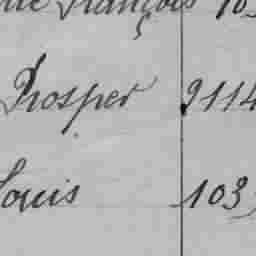 François 10
Prosper 2114
Louis 103